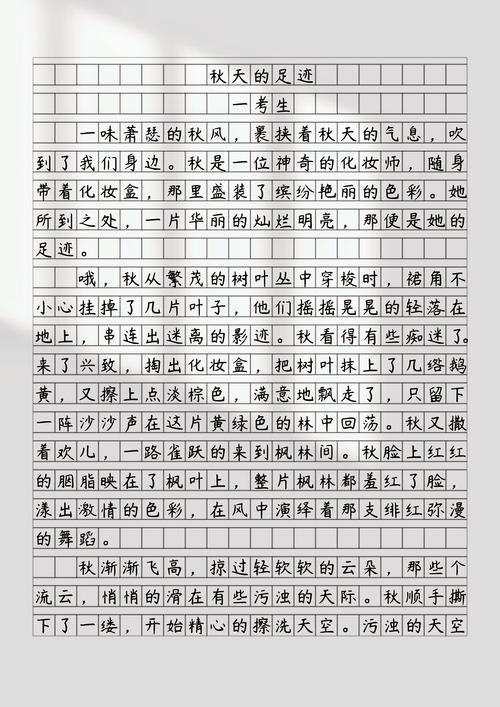 秋天的足迹
一考生
一味萧瑟的秋风，裹挟着秋天的气息，吹
到了我们身边。秋是一位神奇的化妆师，随身
带着化妆盒，那里盛装了缤纷艳丽的色彩。她
所到之处，一片华丽的灿烂明亮，那便是她的
足迹。
哦，秋从繁茂的树叶丛中穿梭时，裙角不
小心挂掉了几片叶子，他们摇摇晃晃的轻落在
地上，串连出迷离的影迹。秋看得有些痴迷了。
来了兴致，掏出化妆盒，把树叶抹上了几绺鹅
黄，又擦上点淡棕色，满意地飘走了，只留下
一阵沙沙声在这片黄绿色的林中回荡。秋又撒
着欢儿，一路雀跃的来到枫林间。秋脸上红红
的胭脂映在了枫叶上，整片枫林都羞红了脸，
漾出激情的色彩，在风中演绎着那支绯红弥漫
的舞蹈。
秋渐渐飞高，掠过轻软软的云朵，那些个
流云，悄悄的滑在有些污浊的天际。秋顺手撕
下了一缕，开始精心的擦洗天空。污浊的天空